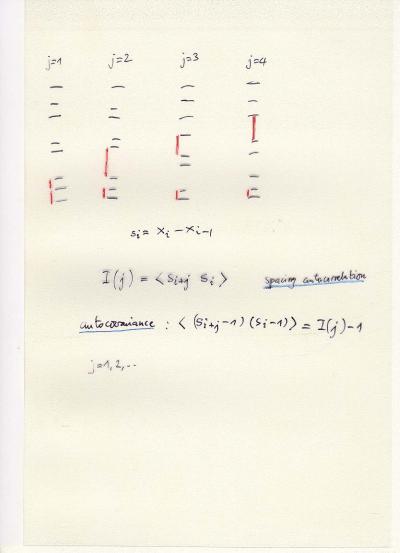 j=1 j=2 j=3 j=4
si = xi − xi−1
I(j) = ⟨ si+j si ⟩ spacing autocorrelation
autocovariance : ⟨ (si+j −1) (si −1) ⟩ = I(j)−1
j=1,2,...